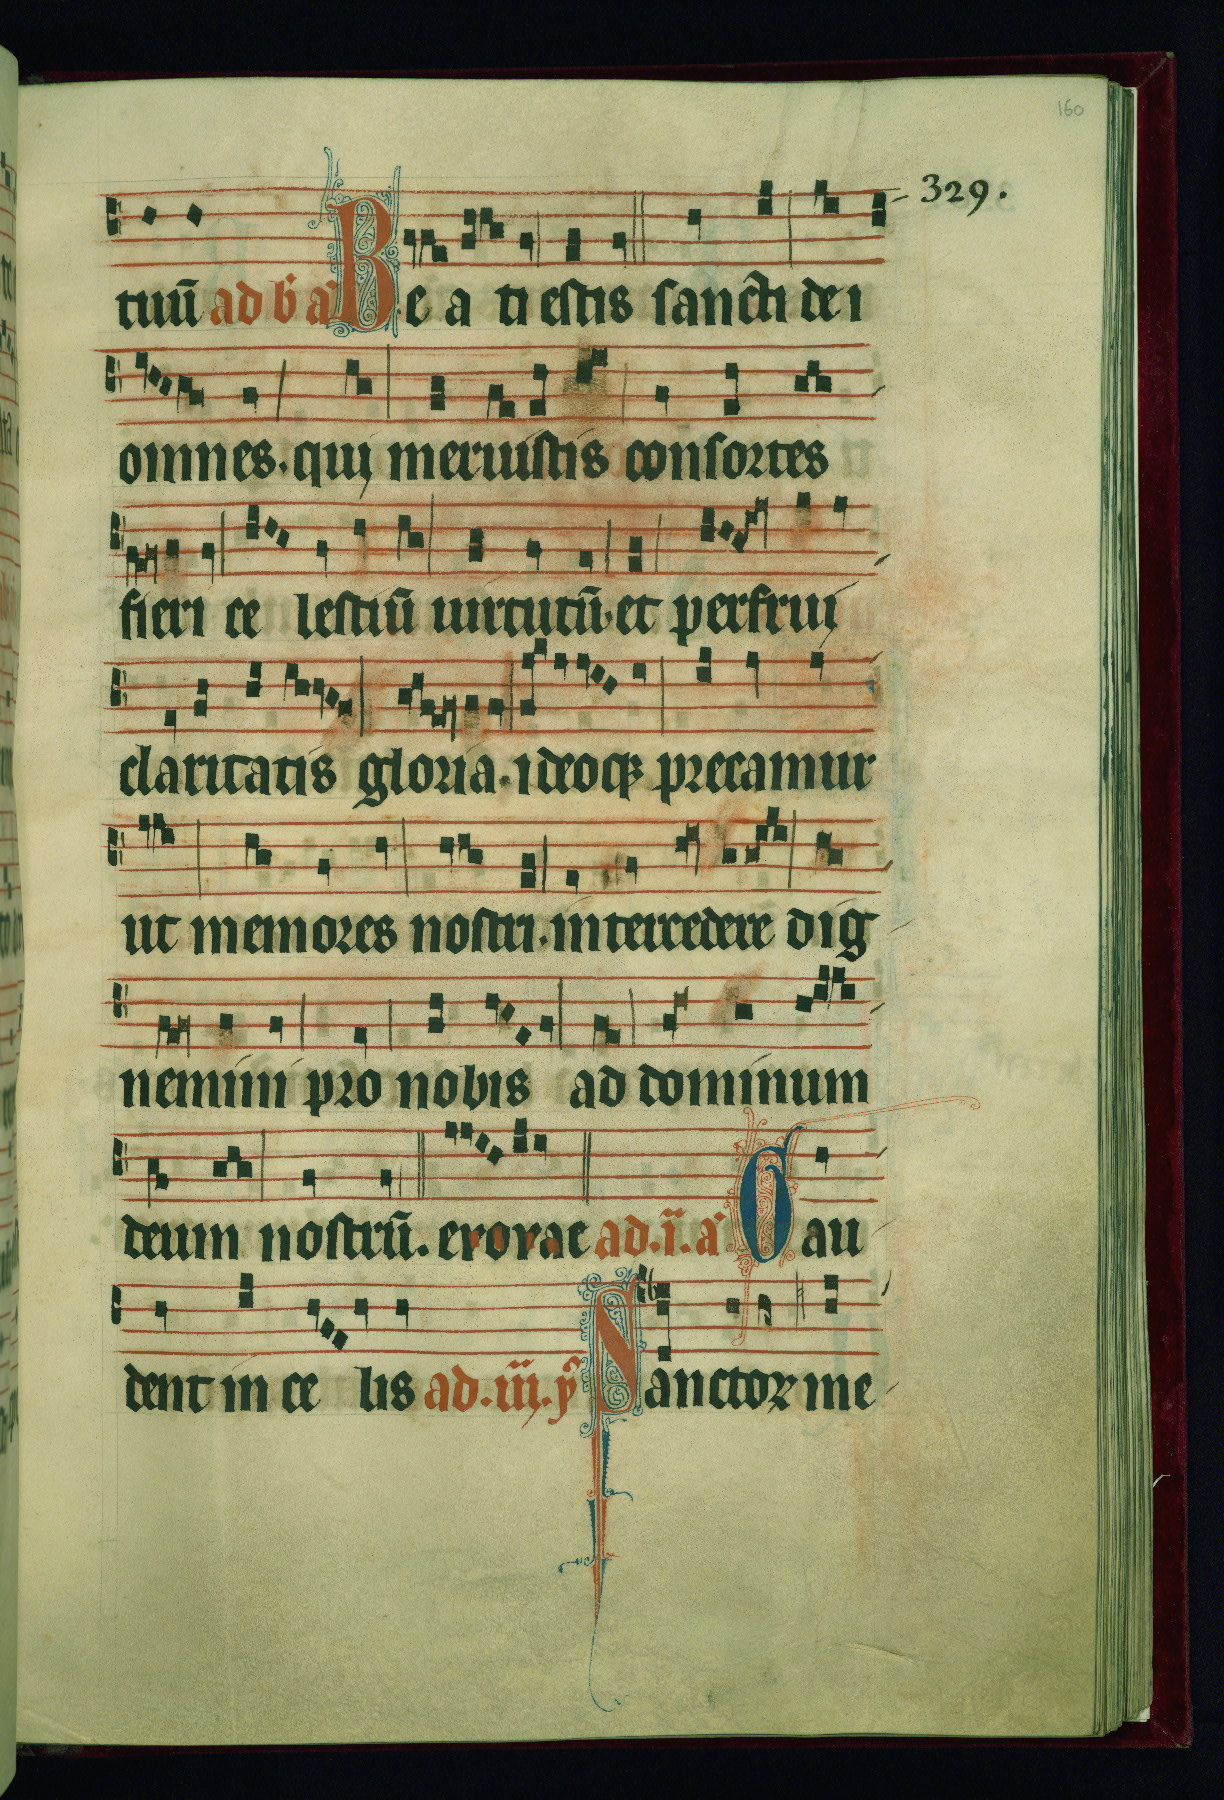 160
329.
tuū ad b̄ a Be a ti estis sancti dei
omnes. qui meruistis consortes
fieri ce lestiū uirtutū. et perfrui
claritatis gloria. ideoqȝ precamur
ut memores nostri. intercedere dig
nemini pro nobis ad dominum
deum nostrū. exorate ad. i. a Gau
dent in ce lis ad. iij. ỹ Sanctoꝝ me